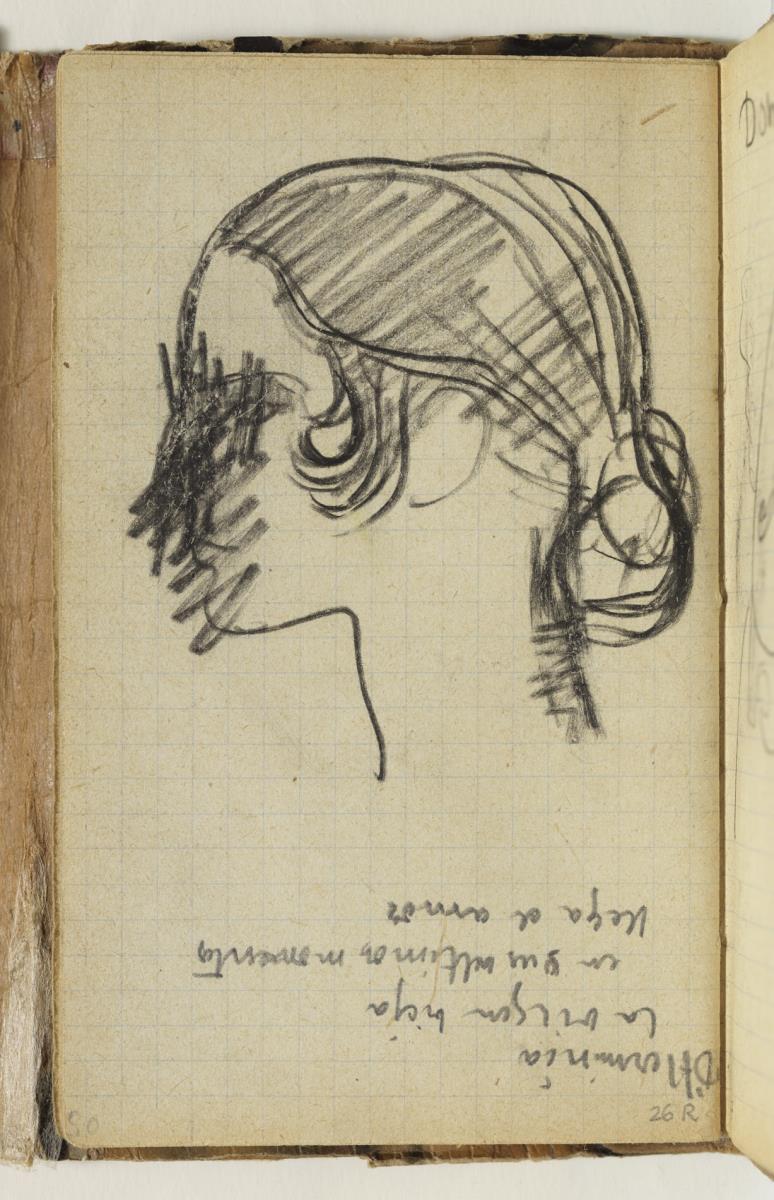 Dª Herminia
la virgen bieja
en sus ultimos momentos
llega el amor
26 R
50